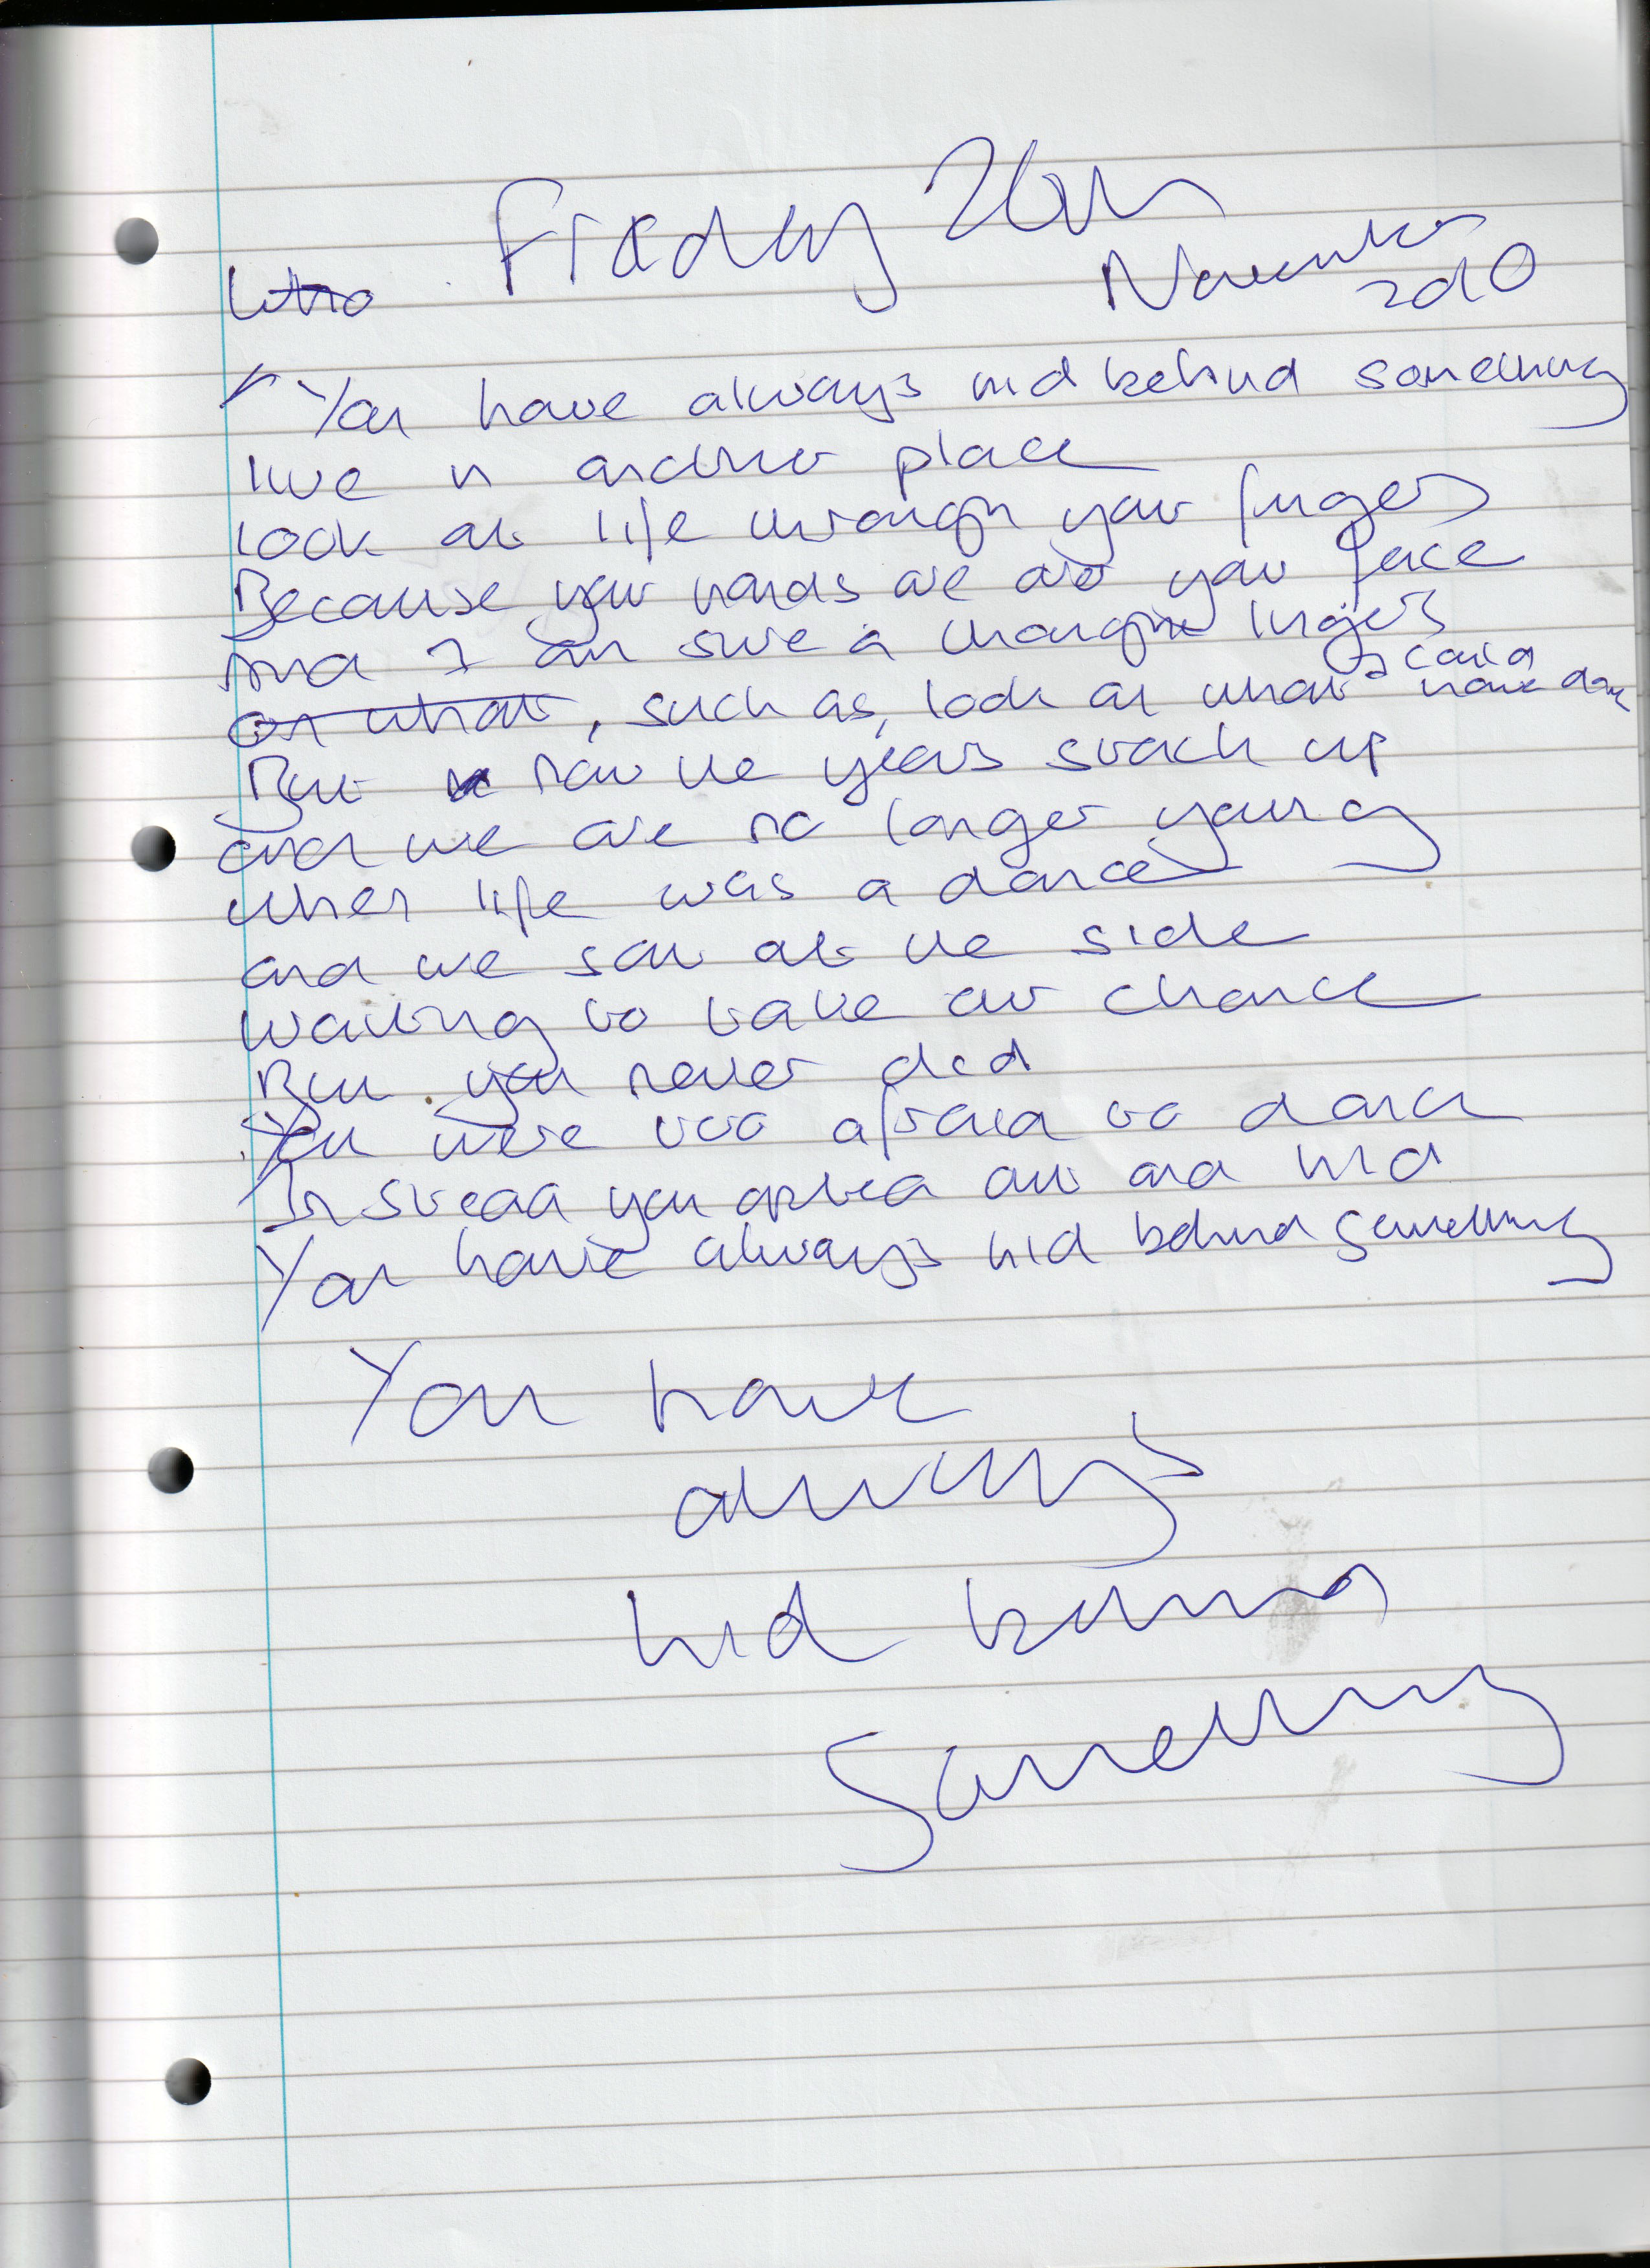 Friday 26th
November
2010
You have always hid behind something
live in another place
look at life through your fingers
Because your hands are over your face
And I am sure a thought lingers
on what, such as, look at what I could have done
But now the years stack up
and we are no longer young
when life was a dance
and we sat at the side
waiting to take our chance
But you never did
You were too afraid to dance
Instead you opted out and hid
You have always hid behind something
You have
always
hid behind
Something